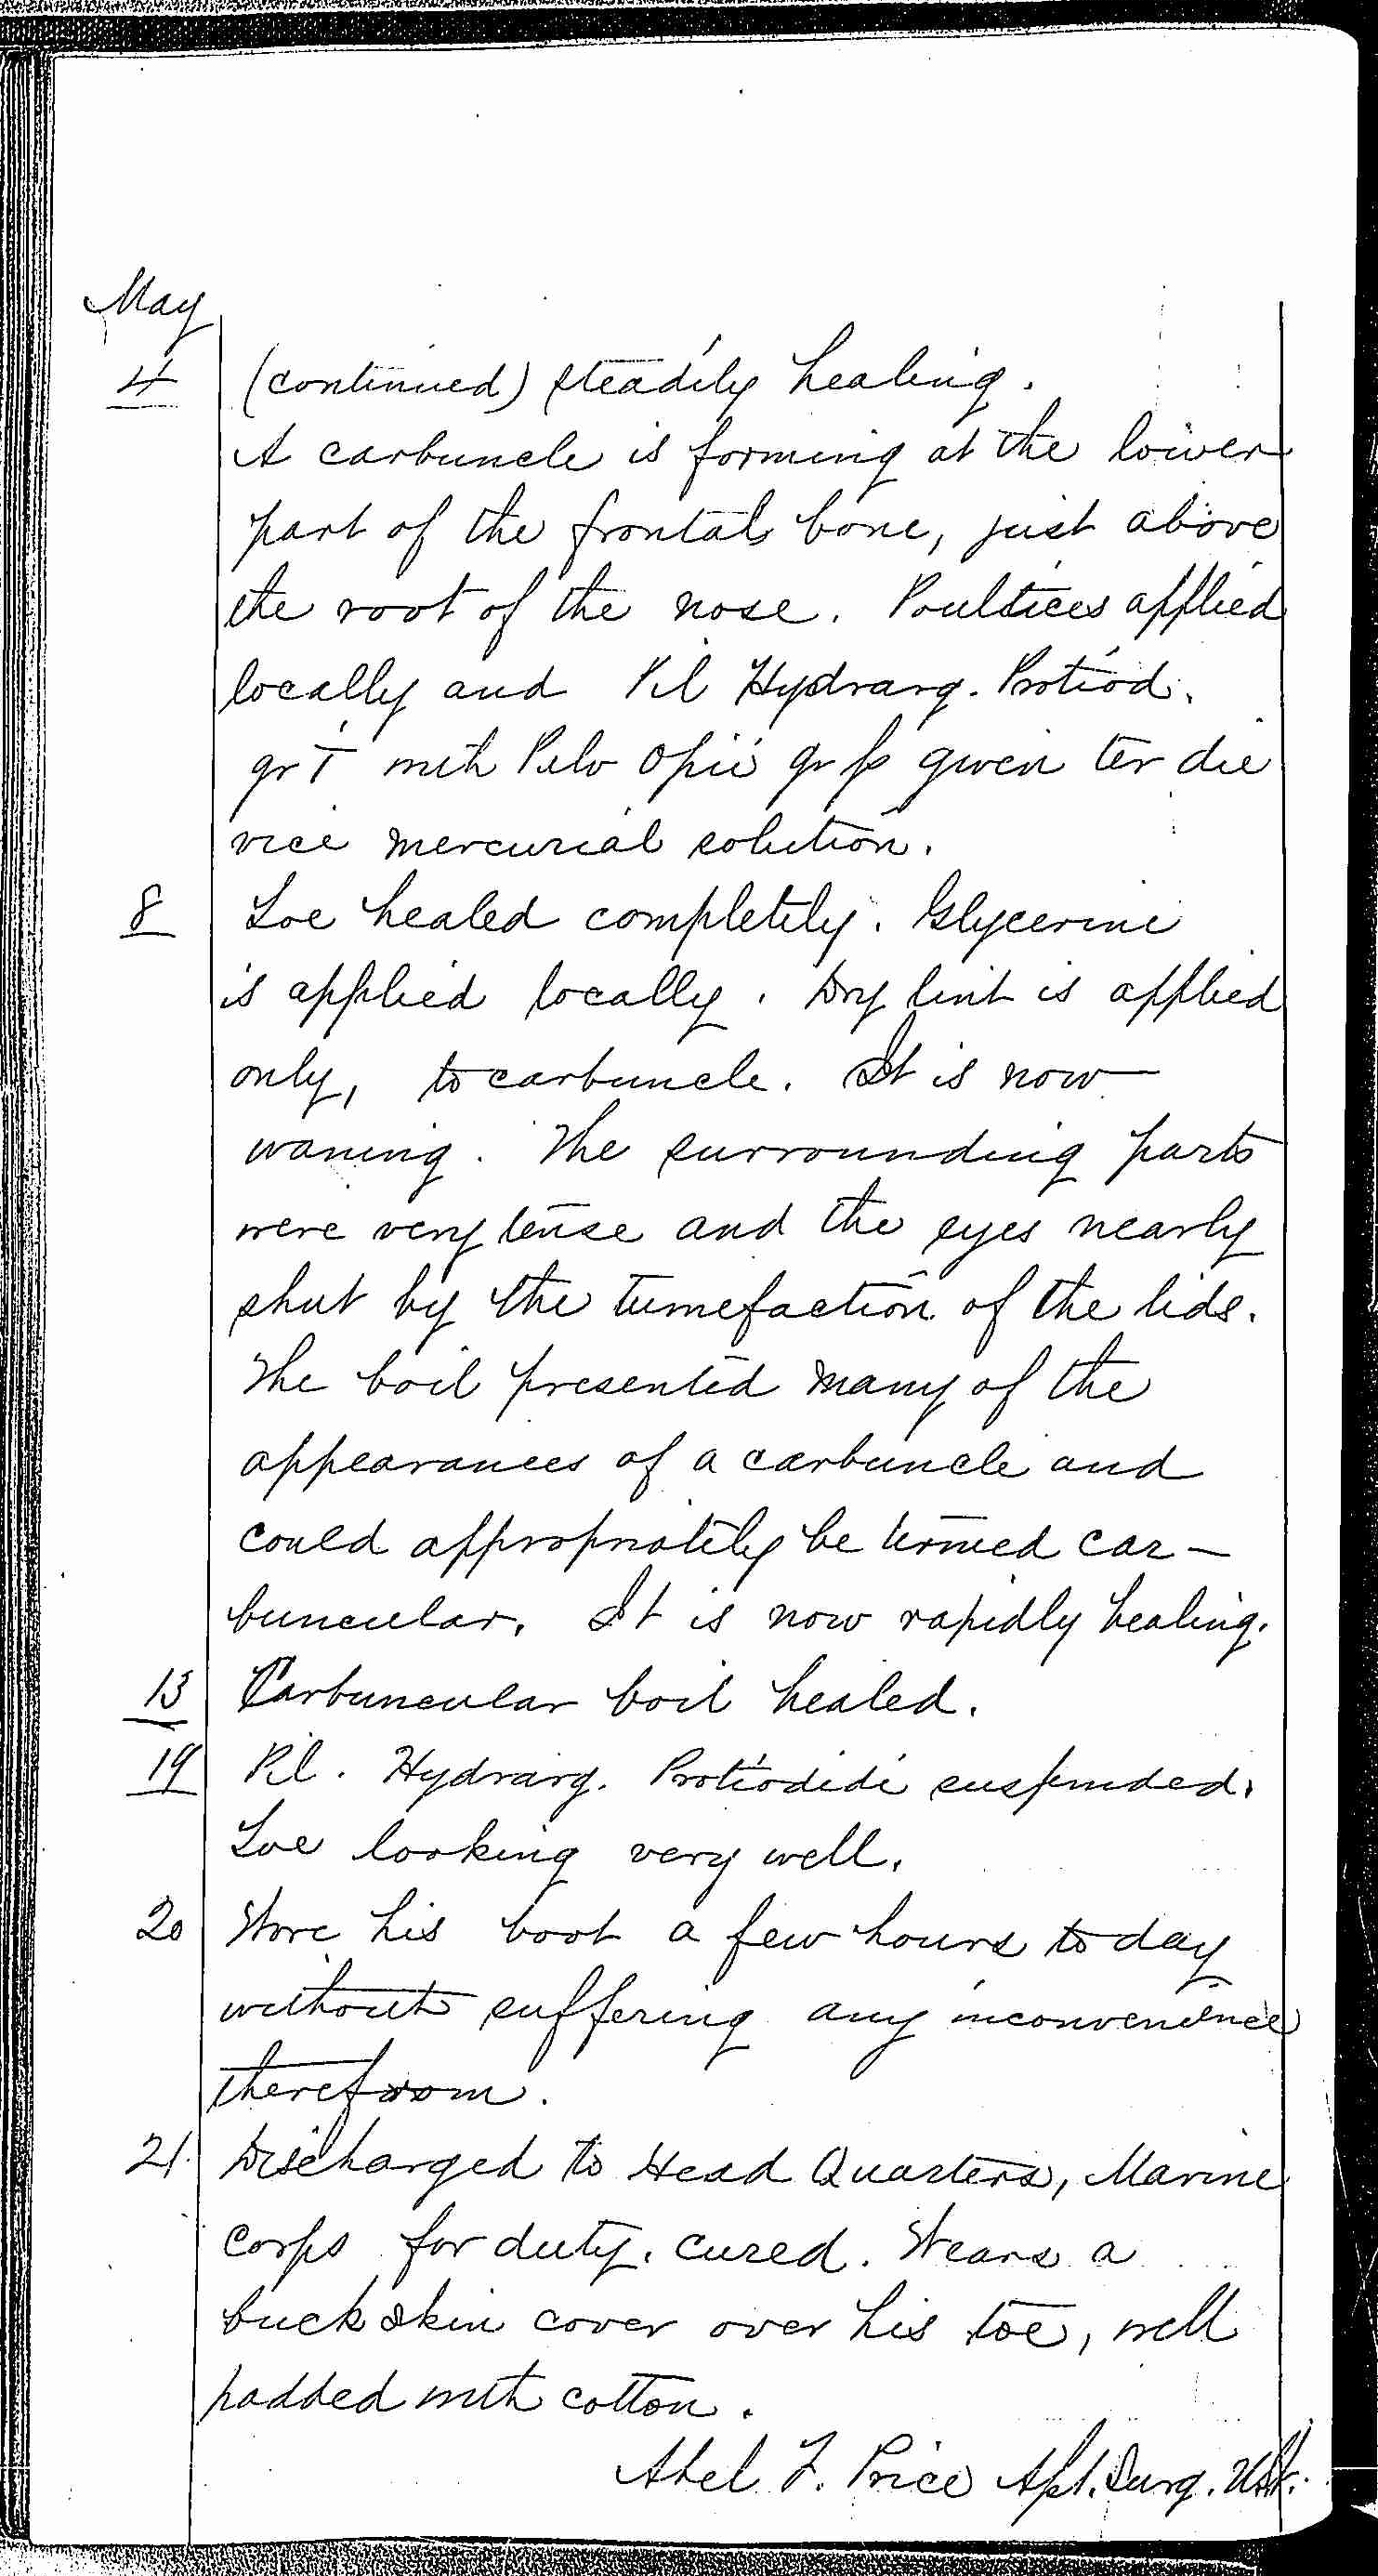 May
4 (continued) steadily healing.
A carbuncle is forming at the lower
part of the frontal bone, just above
the root of the nose. Poultices applied
locally and Pil Hydrarg. Protiod.
gr i with Pulv Opii gr ss given ter die
vice mercurial solution.
8 Toe healed completely. Glycerine
is applied locally. Dry lint is applied
only, to carbuncle. It is now
waning. The surrounding parts
were very tense and the eyes nearly
shut by the tumefaction of the lids.
The boil presented many of the
appearances of a carbuncle and
could appropriately be termed car-
buncular. It is now rapidly healing.
13 Carbuncular boil healed.
19 Pil. Hydrarg. Protiodidi suspended.
Toe looking very well.
20 Wore his boot a few hours to day
without suffering any inconvenience
therefrom.
21. Discharged to Head Quarters, Marine
Corps for duty. cured. Wears a
buckskin cover over his toe, well
padded with cotton.
Abel F. Price Ast. Surg. USN.